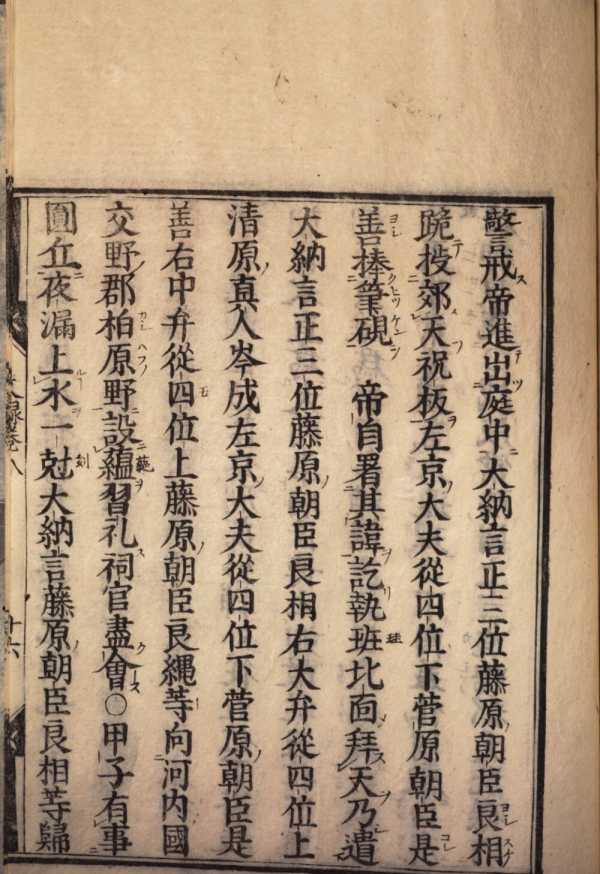 警戒帝進出庭中大納言正三位藤原朝臣良相
跪授郊天祝板左京大夫從四位下菅原朝臣是
善捧筆硯　帝自署其諱訖執班北面拜天乃遣
大納言正三位藤原朝臣良相右大弁從四位上
清原真人岑成左京大夫從四位下菅原朝臣是
善右中弁從四位上藤原朝臣良縄等向河内國
交野郡柏原野設蕴習礼祠官盡會○甲子有事
圓丘夜漏上水一尅大納言藤原朝臣良相等歸